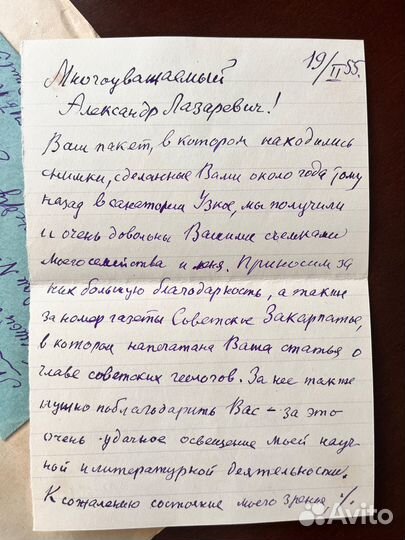 19/II 55.
Многоуважаемый
Александр Лазаревич!
Ваш пакет, в котором находились
снимки, сделанные Вами около года тому
назад в санатории Узкое, мы получили
и очень довольны Вашими съемками
моего семейства и меня. Приносим за
них большую благодарность, а также
за номер газеты Советское Закарпатье,
в котором напечатана Ваша статья о
главе советских геологов. За нее также
нужно поблагодарить Вас – за это
очень удачное освещение моей науч-
ной и литературной деятельности.
К сожалению состояние моего зрения ./.
Avito